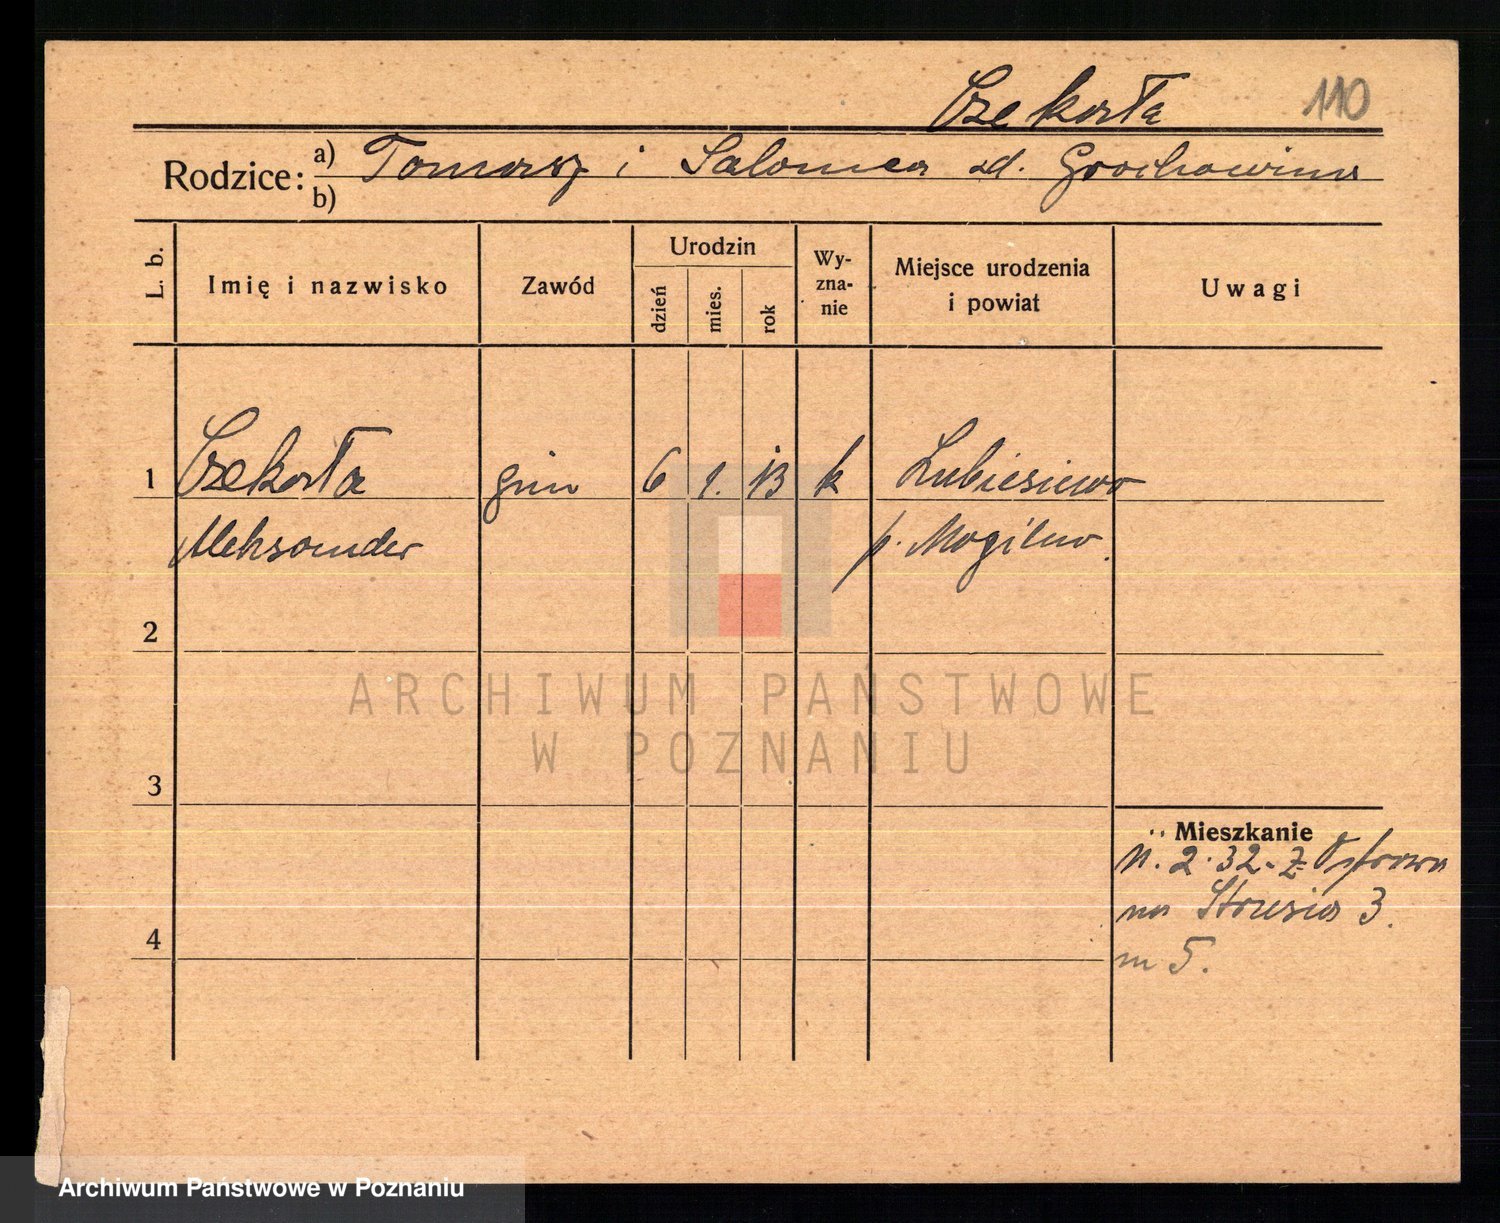 Czekała 110
Rodzice: a) Tomasz i Salomea zd. Grochowina
b)
L. b.
Imię i nazwisko
Zawód
Urodzin
dzień
mies.
rok
Wy-
zna-
nie
Miejsce urodzenia
i powiat
Uwagi
1 Czekała gim 6 1. 13 k Lubiesiewo
Aleksander p. Mogilno.
2
3
4
Mieszkanie
11. 2. 32. z Ostrowa
na Strusia 3.
m 5.
ARCHIWUM PAŃSTWOWE
W POZNANIU
Archiwum Państwowe w Poznaniu